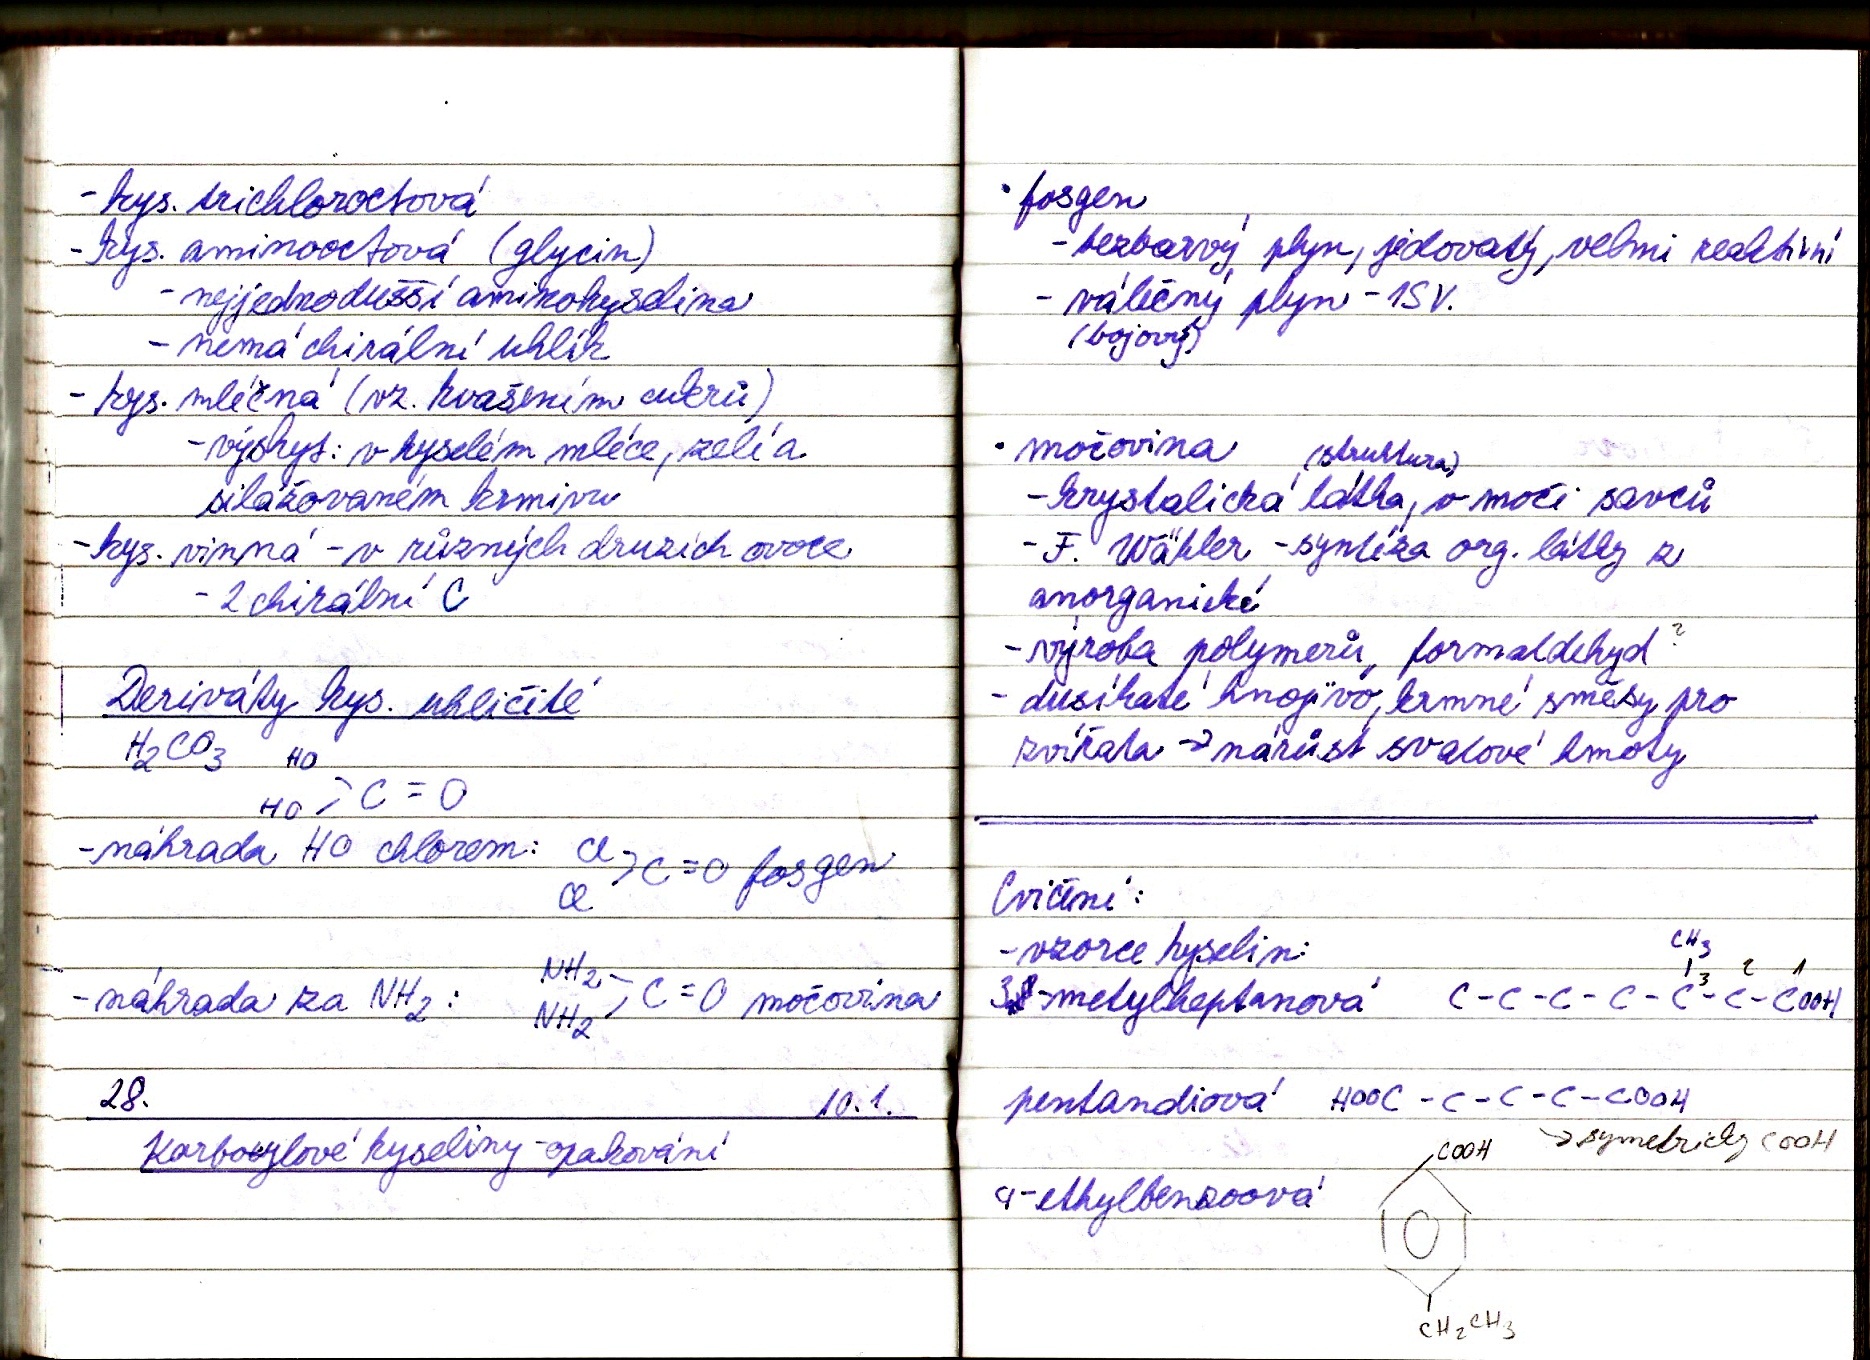 - kys. trichloroctová
- kys. aminooctová (glycin)
- nejjednodušší aminokyselina
- nemá chirální uhlík
- kys. mléčná (vz. kvašením cukrů)
- výskyt: v kyselém mléce, zelí a
silážovaném krmivu
- kys. vinná - v různých druzích ovoce
- 2 chirální C
Deriváty kys. uhličité
H2CO3
HO
HO > C = O
- náhrada HO chlorem: Cl
Cl > C = O fosgen
- náhrada za NH2: NH2
NH2 > C = O močovina
28. 10.1.
Karboxylové kyseliny - opakování
• fosgen
- bezbarvý plyn, jedovatý, velmi reaktivní
- válečný plyn - 1SV.
(bojový)
• močovina (struktura)
- krystalická látka, v moči savců
- F. Wähler - syntéza org. látky z
anorganické
- výroba polymerů, formaldehyd ?
- dusíkaté hnojivo, krmné směsy pro
zvířata → nárůst svalové hmoty
Cvičení:
- vzorce kyselin:
CH3
3-metylheptanová C - C - C - C - C3 - C2 - C1OOH
pentandiová HOOC - C - C - C - COOH
→ symetricky COOH
COOH
4-ethylbenzoová
CH2CH3